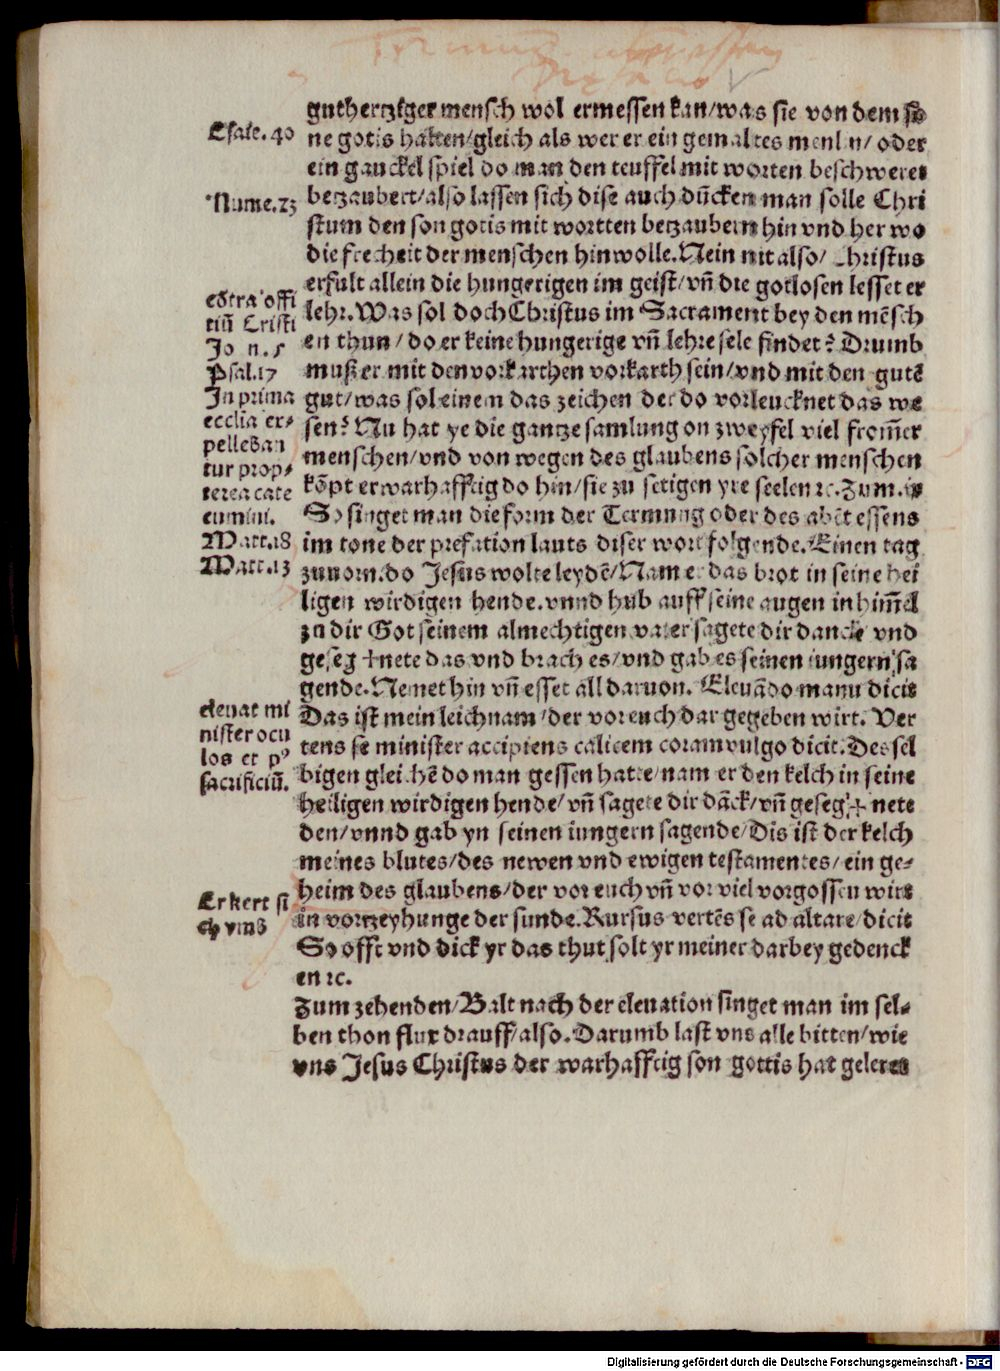 guthertziger mensch wol ermessen kan/was sie von dem so
ne gotis halten/gleich als wer er ein gemaltes menlin/oder
ein gauckel spiel do man den teuffel mit worten beschweret
betzaubert/also lassen sich dise auch dücken man solle Chri
stum den son gotis mit wortten betzaubern hin vnd her wo
die frecheit der menschen hin wolle. Nein nit also/ Christus
erfult allein die hungerigen im geist/vñ die gotlosen lesset er
lehr. Was sol doch Christus im Sacrament bey den mẽsch
en thun/do er keine hungerige vñ lehre sele findet? Drumb
muß er mit den vorkarthen vorkarth sein/vnd mit den gutẽ
gut/was sol einem das zeichen der do vorleucknet das we
sen? Nu hat ye die gantze samlung on zweyfel viel from̃er
menschen/vnd von wegen des glaubens solcher menschen
kõpt er warhafftig do hin/sie zu setigen yre seelen ꝛc. Zum .ix
So singet man die form der Termung oder des abẽt essens
im tone der prefation lauts diser wort folgende. Einen tag
zuuorn.do Jesus wolte leydẽ/Nam er das brot in seine hei
ligen wirdigen hende.vnnd hub auff seine augen in him̃el
zu dir Got seinem almechtigen vater sagete dir danck/ vnd
geseg ✝nete das vnd brach es/vnd gab es seinen iungern/sa
gende. Nemet hin vñ esset all daruon. Eleuãdo manu dicit
Das ist mein leichnam/der vor euch dar gegeben wirt. Ver
tens se minister accipiens calicem coram vulgo dicit. Des sel
bigen gleichẽ do man gessen hatte/nam er den kelch in seine
heiligen wirdigen hende/vñ sagete dir dãck/vñ geseg ✝ nete
den/vnnd gab yn seinen iungern sagende/Dis ist der kelch
meines blutes/des newen vnd ewigen testamentes/ein ge-
heim des glaubens/der vor euch vñ vor viel vorgossen wirt
in vortzeyhunge der sunde. Rursus vertẽs se ad altare/dicit
So offt vnd dick yr das thut solt yr meiner darbey gedenck
en ꝛc.
Zum zehenden/Balt nach der eleuation singet man im sel-
ben thon flux drauff/also. Darumb last vns alle bitten/wie
vns Jesus Christus der warhafftig son gottis hat geleret
Esaie. 40
Nume. 23
cõtra offi
tiũ Cristi
Psal. 17
In prima
ecclīa ex-
pelleban
tur prop-
terea cate
cumini.
Matt. 18
Matt. 13
eleuat mi
nister ocu
los et pꝰ
sacrificiũ.
Er kert si
ch vmb
Digitalisierung gefördert durch die Deutsche Forschungsgemeinschaft - DFG